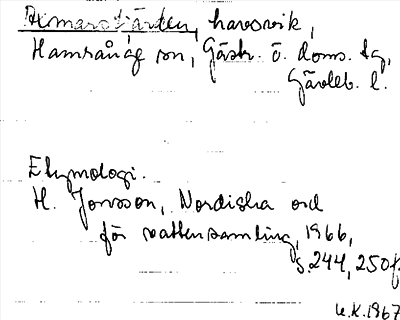 havsvik,
Hamrånge sn, Gästr. ö. doms. tg,
Gävleb. l.
Etymologi.
H. Jonsson, Nordiska ord
för vattensamling, 1966,
s. 244, 250f.
U.K. 1967